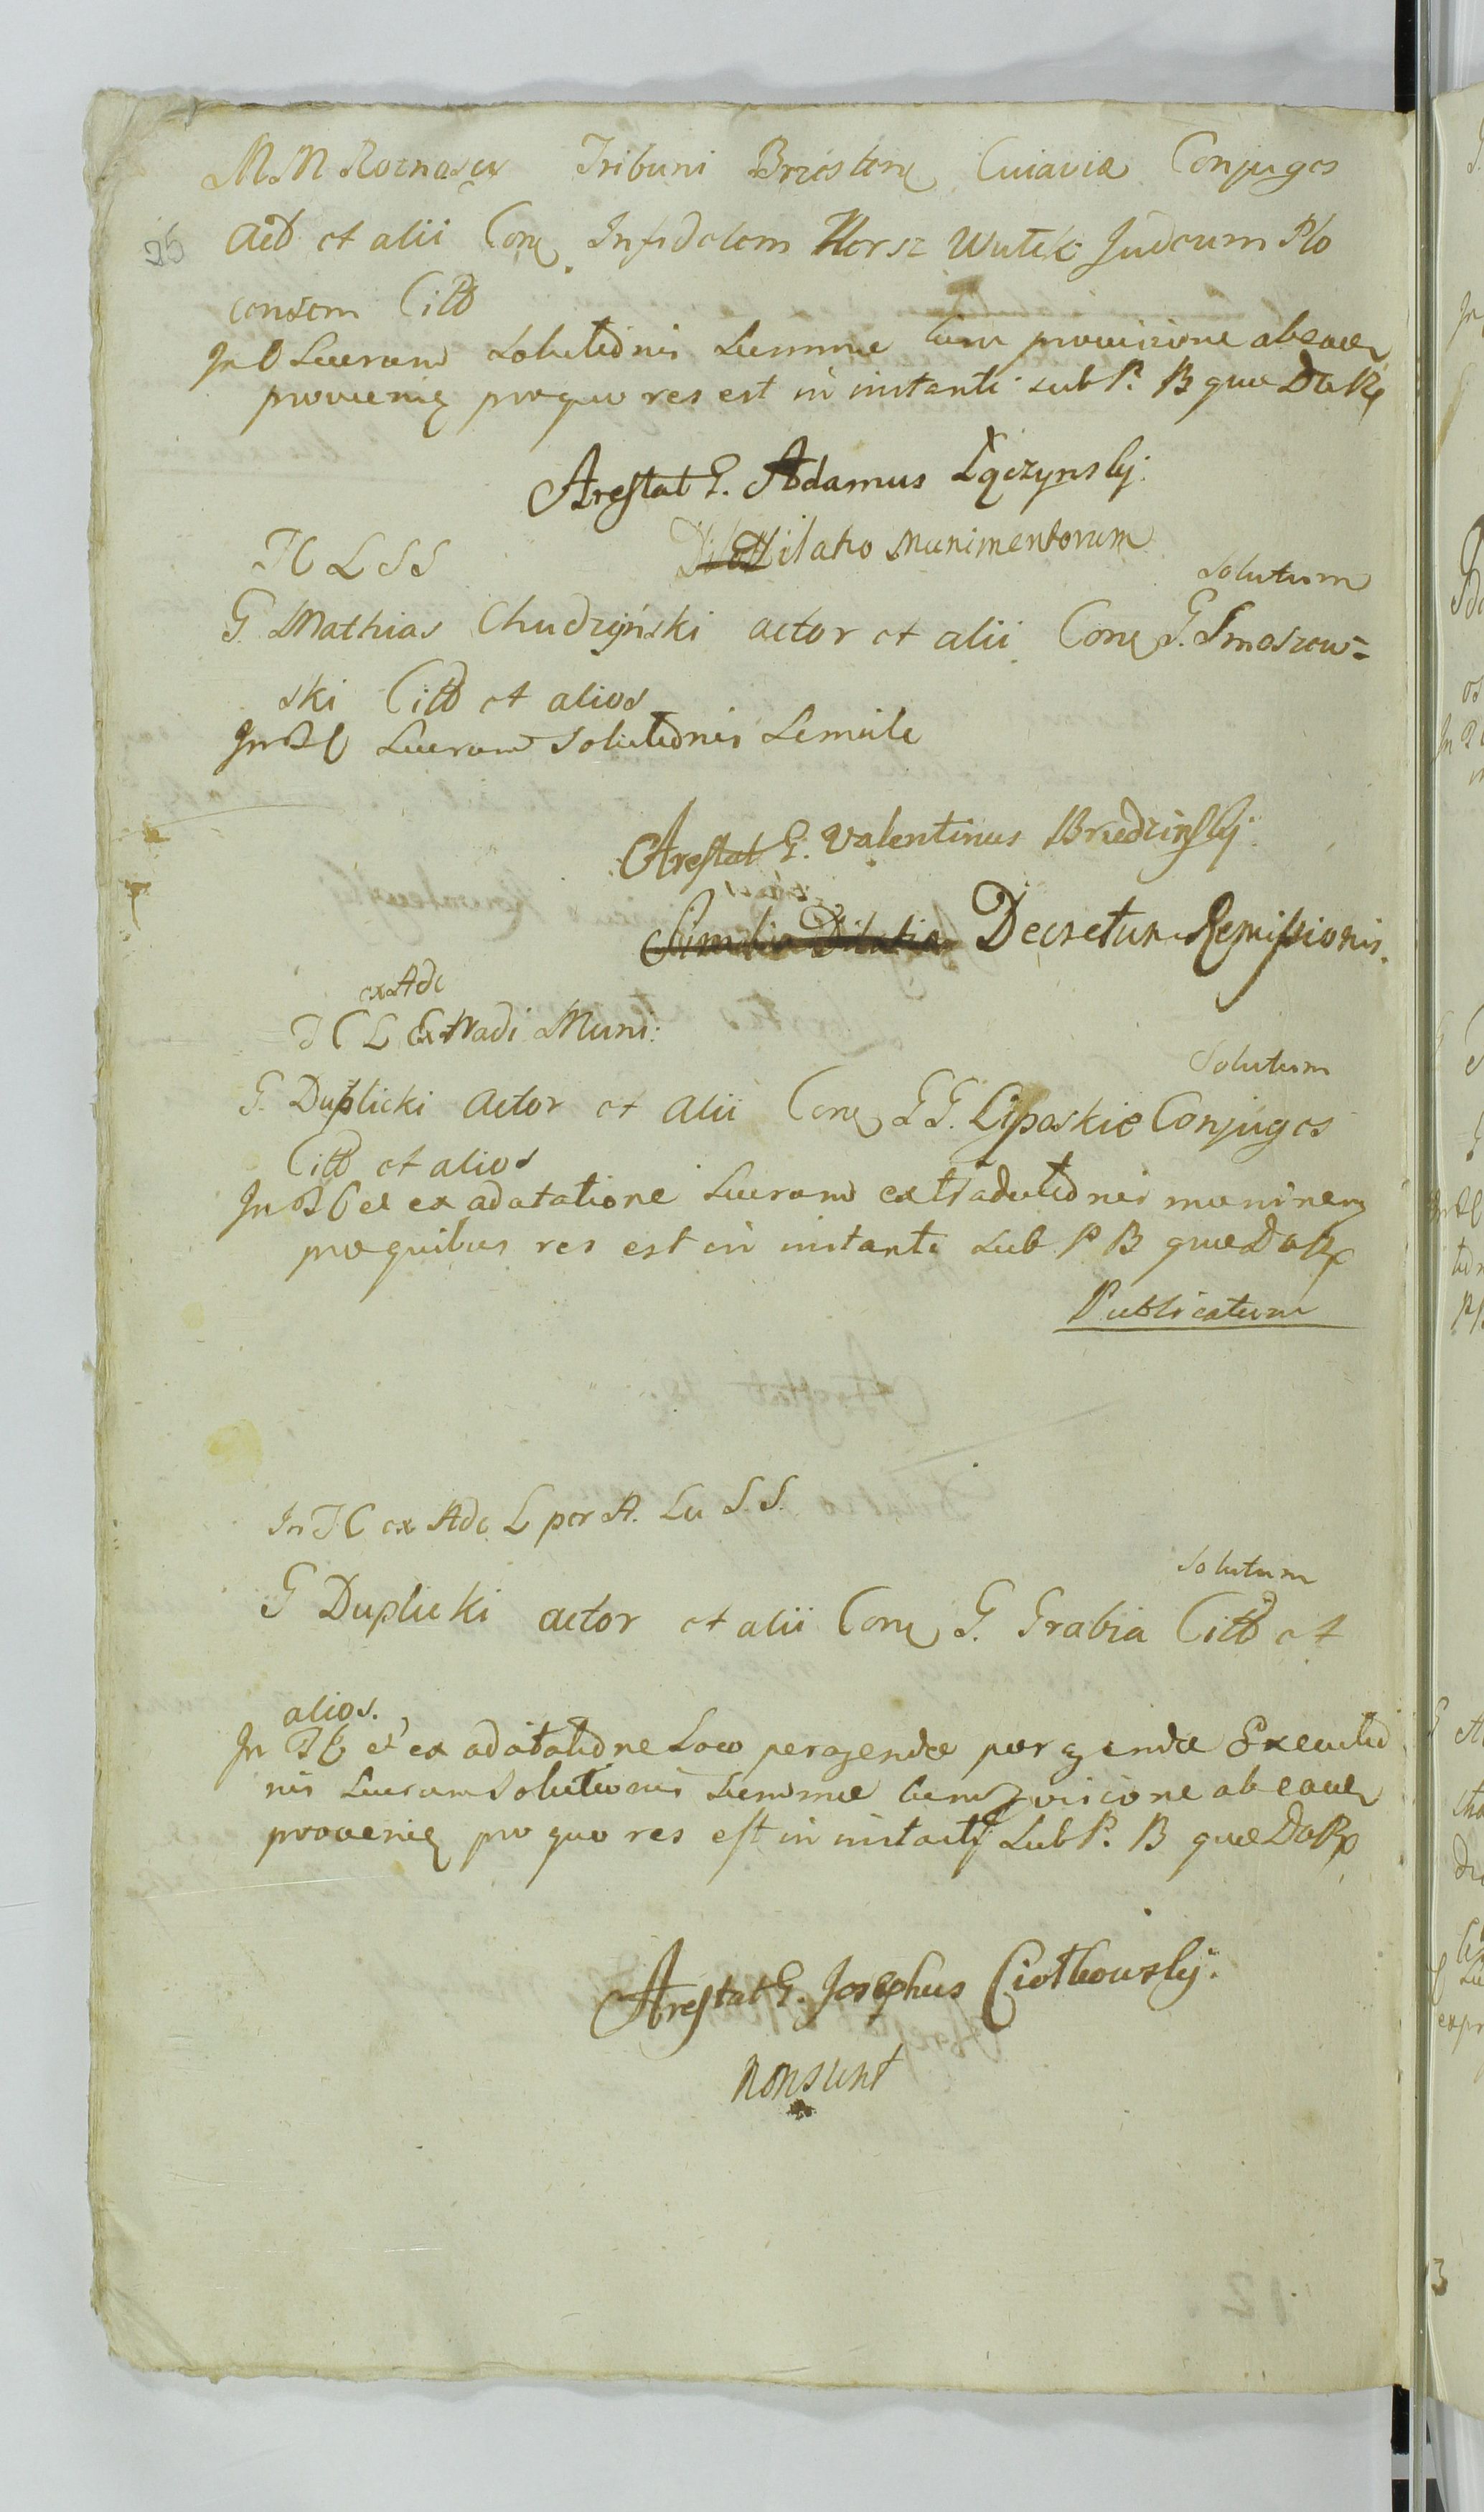 MM Roznascy Tribuni Brzesten Cuiavia Conjuges
25 act et alii Con Infidelem Hersz Wutek Judeum Plo
censem Citt
In Lucrum Solutionis Summe cum provisione ab ea
provenie pro quo res est in instanti sub P. B que
Arestat G. Adamus Łączynsky.
Dilatio Munimentorum
T C L S S
Solutum
G. Mathias Chudzyński actor et alii Con G. Smoszew=
ski Citt et alios
In T C Lucrum Solutionis Simile
Arestat G. Valentinus Brudzinsky.
Similis Dilatio Decretum Remissionis.
ex Adc
T C L Extradi Muni:
Solutum
G. Duplicki actor et alii Con GG. Lipaskie Conjuges
Citt et alios
In T C et ex adatatione Lucrum extradutionis munimen
pro quibus res est in instanti sub P B que
Publicatum
In T C ex Adc L per A. Lu S. S.
Solutum
G Duplicki actor et alii Con G. Grabia Citt et
alios.
In T C et ex adatatione Loco peragendae peragendae Executio
nis Lucrum Solutionis Summe cum provisione ab ea
provenie pro quo res est in instanti sub P. B que
Arestat G. Josephus Ciołkowsky.
non sunt
12